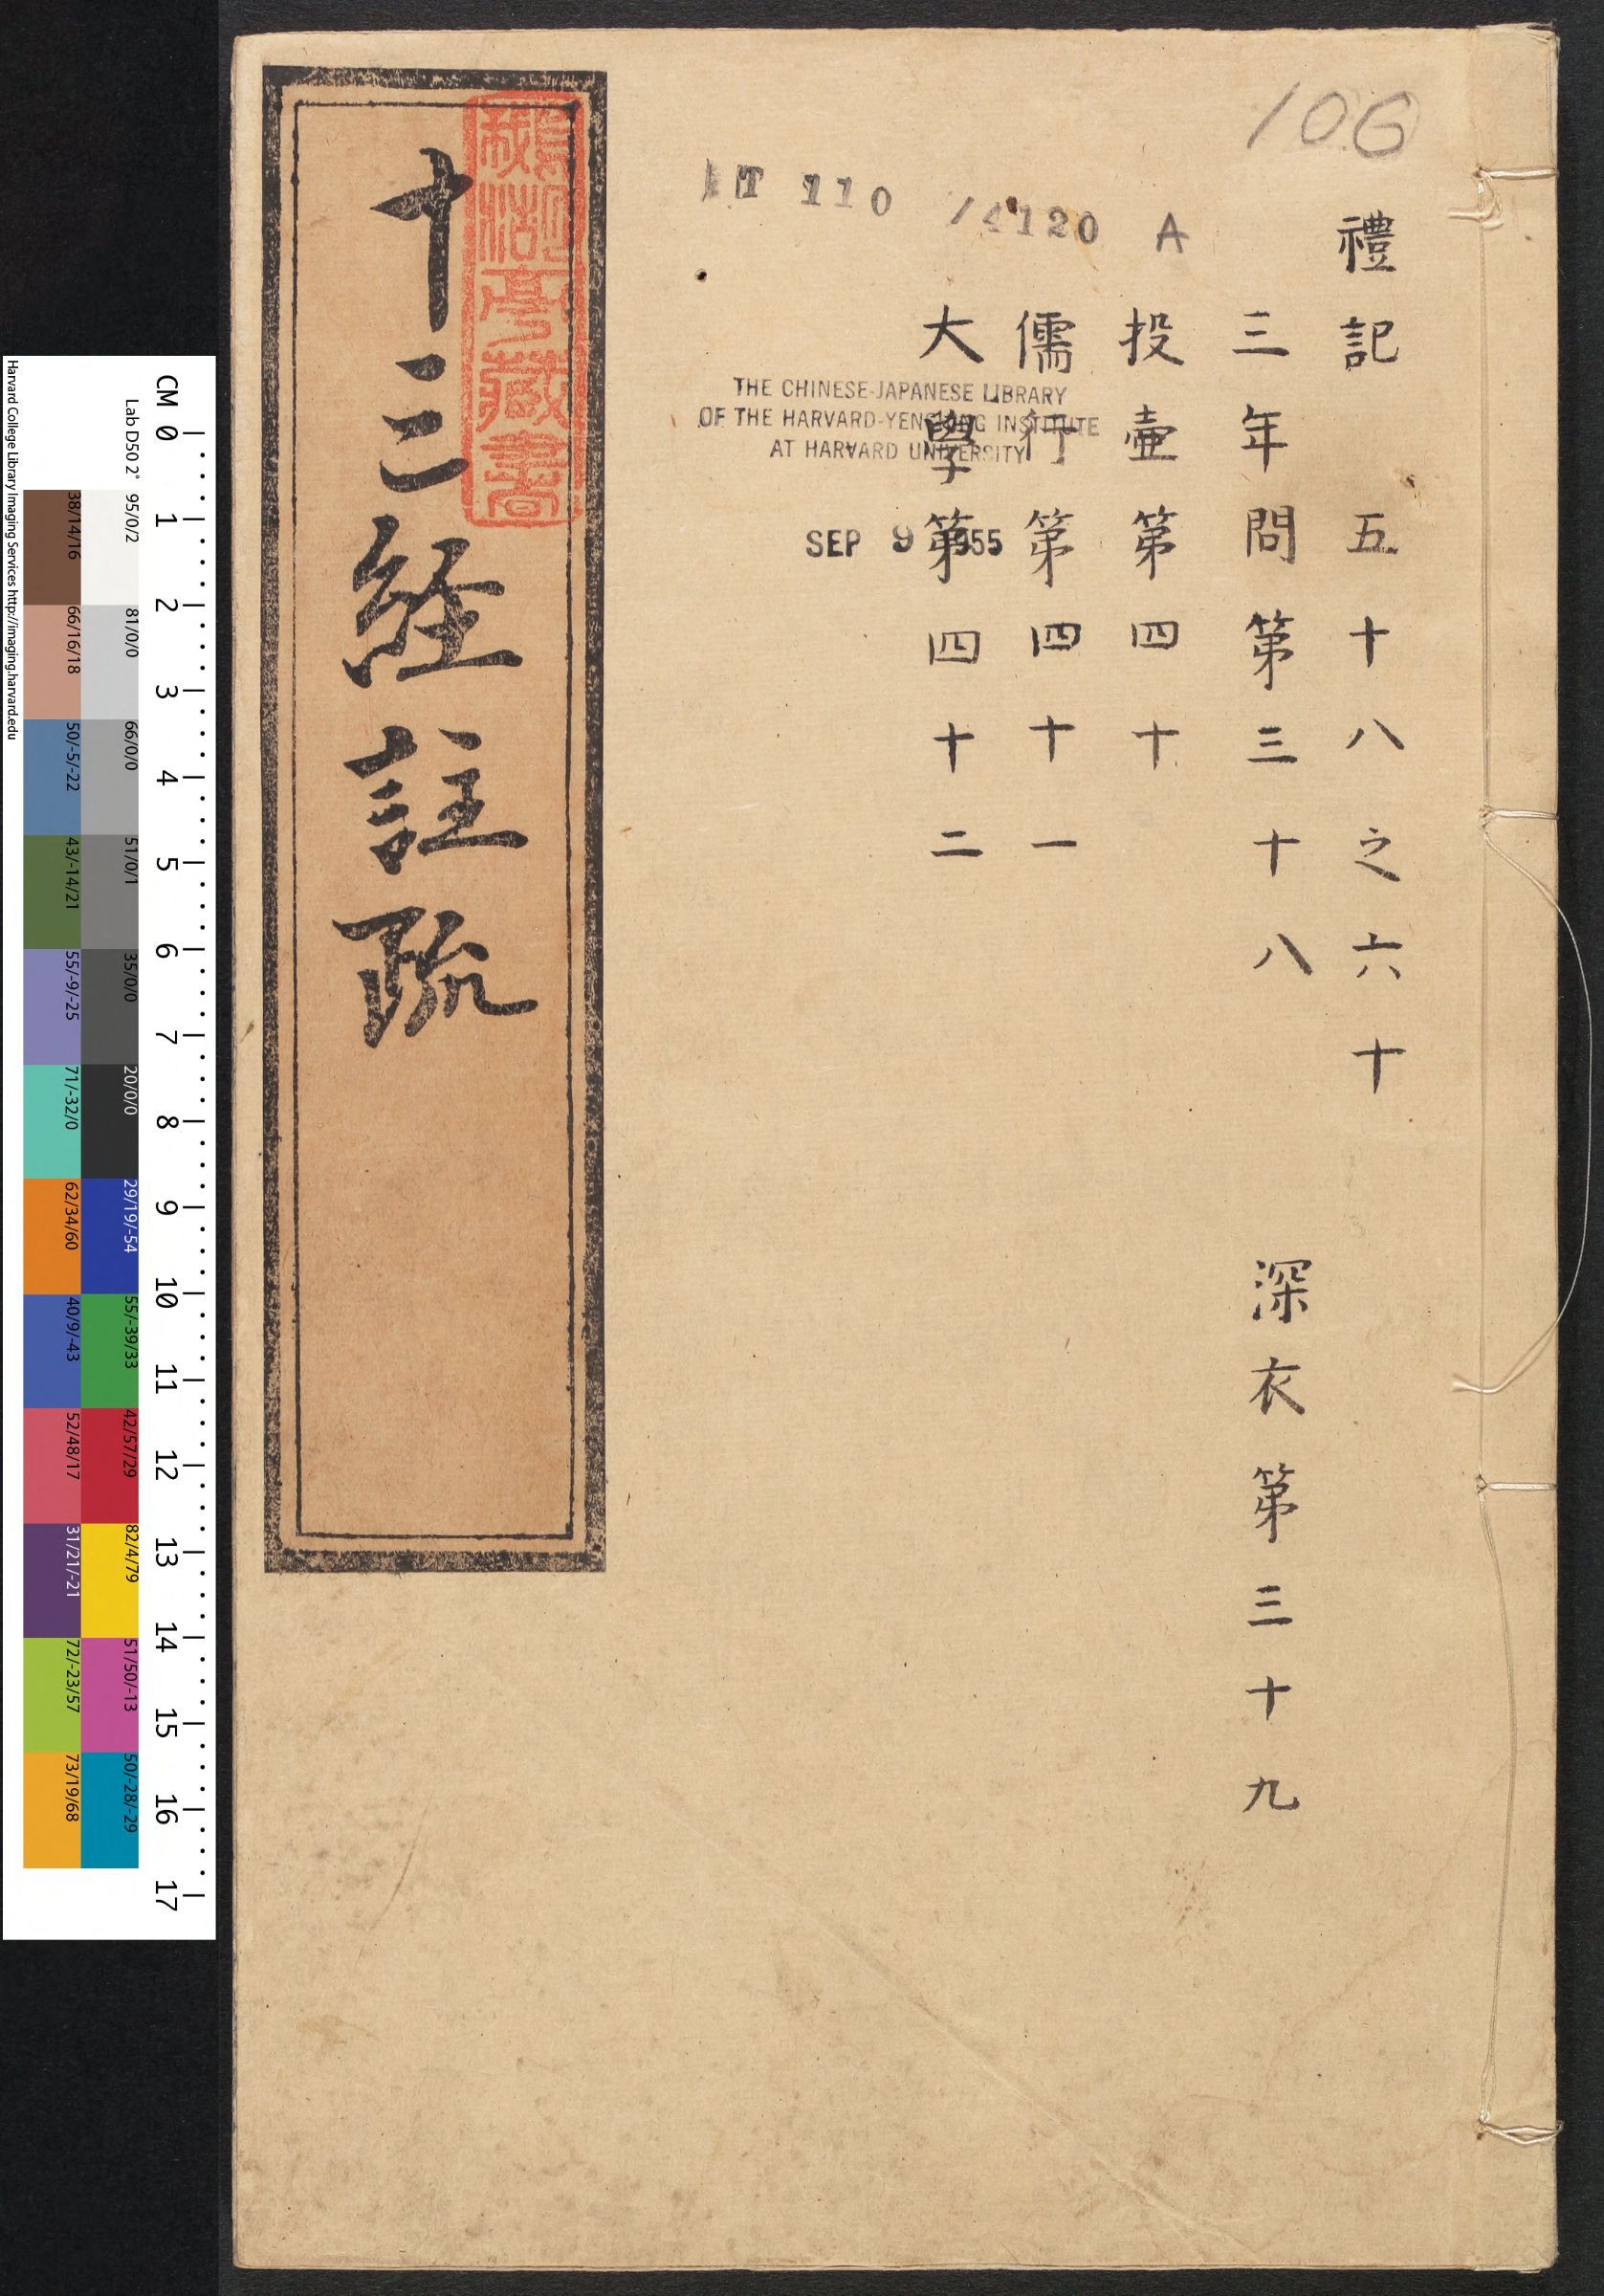 106
禮記 五十八之六十
三年問第三十八 深衣第三十九
投壷第四十
儒行第四十一
大學第四十二
T 110 /4120 A
THE CHINESE-JAPANESE LIBRARY
OF THE HARVARD-YENCHING INSTITUTE
AT HARVARD UNIVERSITY
SEP 9 1955
十三経註疏
亭藏書
CM 0 1 2 3 4 5 6 7 8 9 10 11 12 13 14 15 16 17
Lab D50 2°
95/0/2
81/0/0
66/0/0
51/0/1
35/0/0
20/0/0
29/19/-54
55/-39/33
42/57/29
82/4/79
51/50/-13
50/-28/-29
38/14/16
66/16/18
50/-5/-22
43/-14/21
55/-9/-25
71/-32/0
62/34/60
40/9/-43
52/48/17
31/21/-21
72/-23/57
73/19/68
Harvard College Library Imaging Services http://imaging.harvard.edu